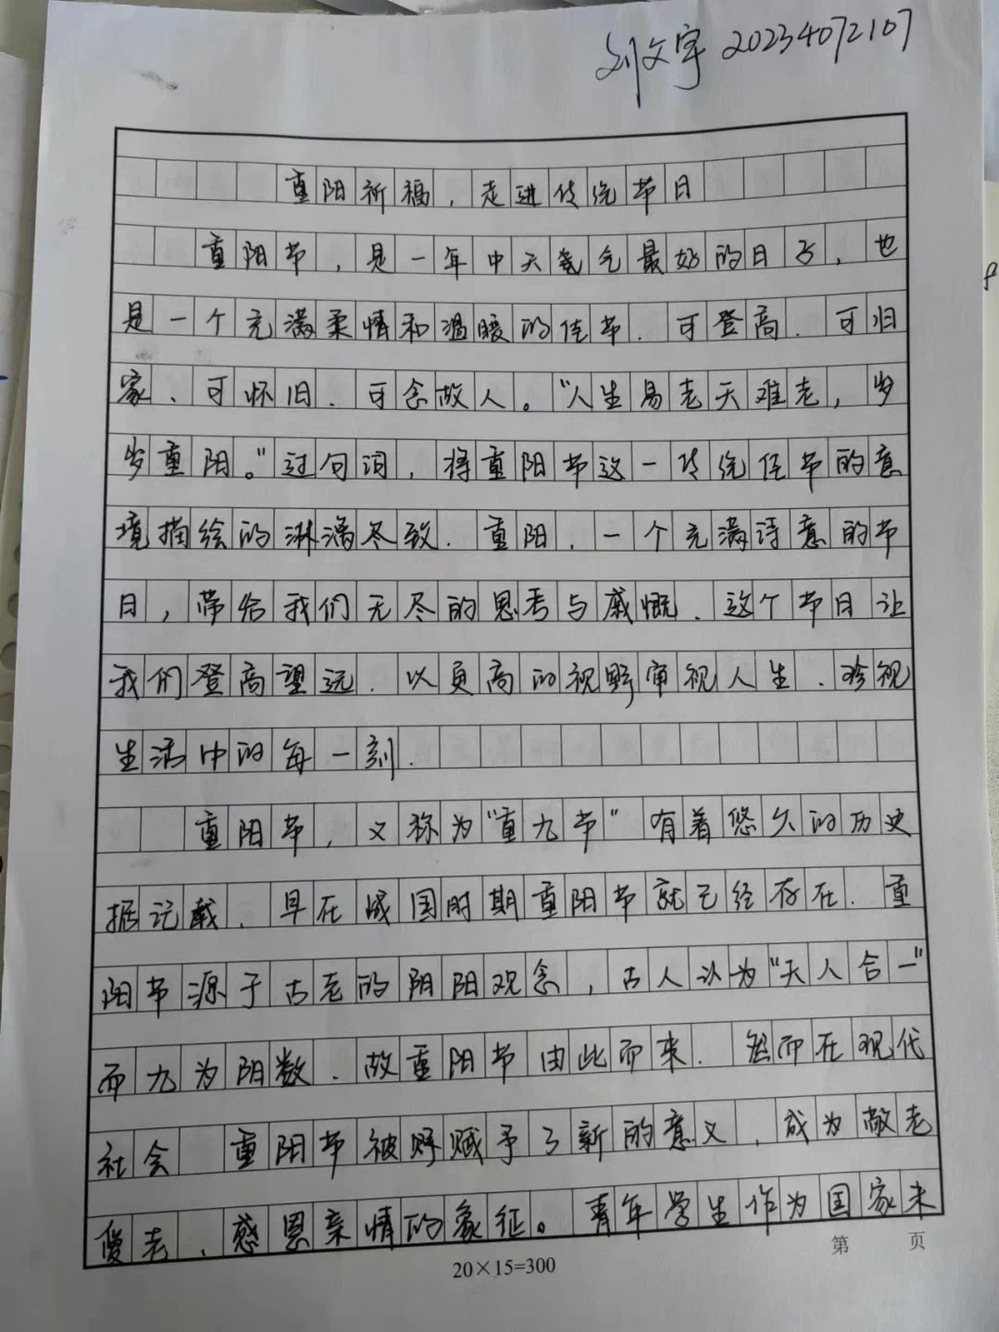 刘文宇 20234072107
重阳祈福，走进传统节日
重阳节，是一年中天气最好的日子，也
是一个充满柔情和温暖的佳节.可登高.可归
家、可怀旧.可念故人。“人生易老天难老，岁
岁重阳。”过句词，将重阳节这一传统佳节的意
境描绘的淋漓尽致.重阳.一个充满诗意的节
日，带给我们无尽的思考与感慨.这个节日让
我们登高望远.以更高的视野审视人生.珍视
生活中的每一刻.
重阳节，又称为“重九节”有着悠久的历史
据记载、早在战国时期重阳节就已经存在.重
阳节源于古老的阴阳观念，古人认为“天人合一”
而九为阴数.故重阳节由此而来.然而在现代
社会 重阳节被赋予了新的意义，成为敬老
爱老、感恩亲情的象征。青年学生作为国家未
20×15=300
第 页